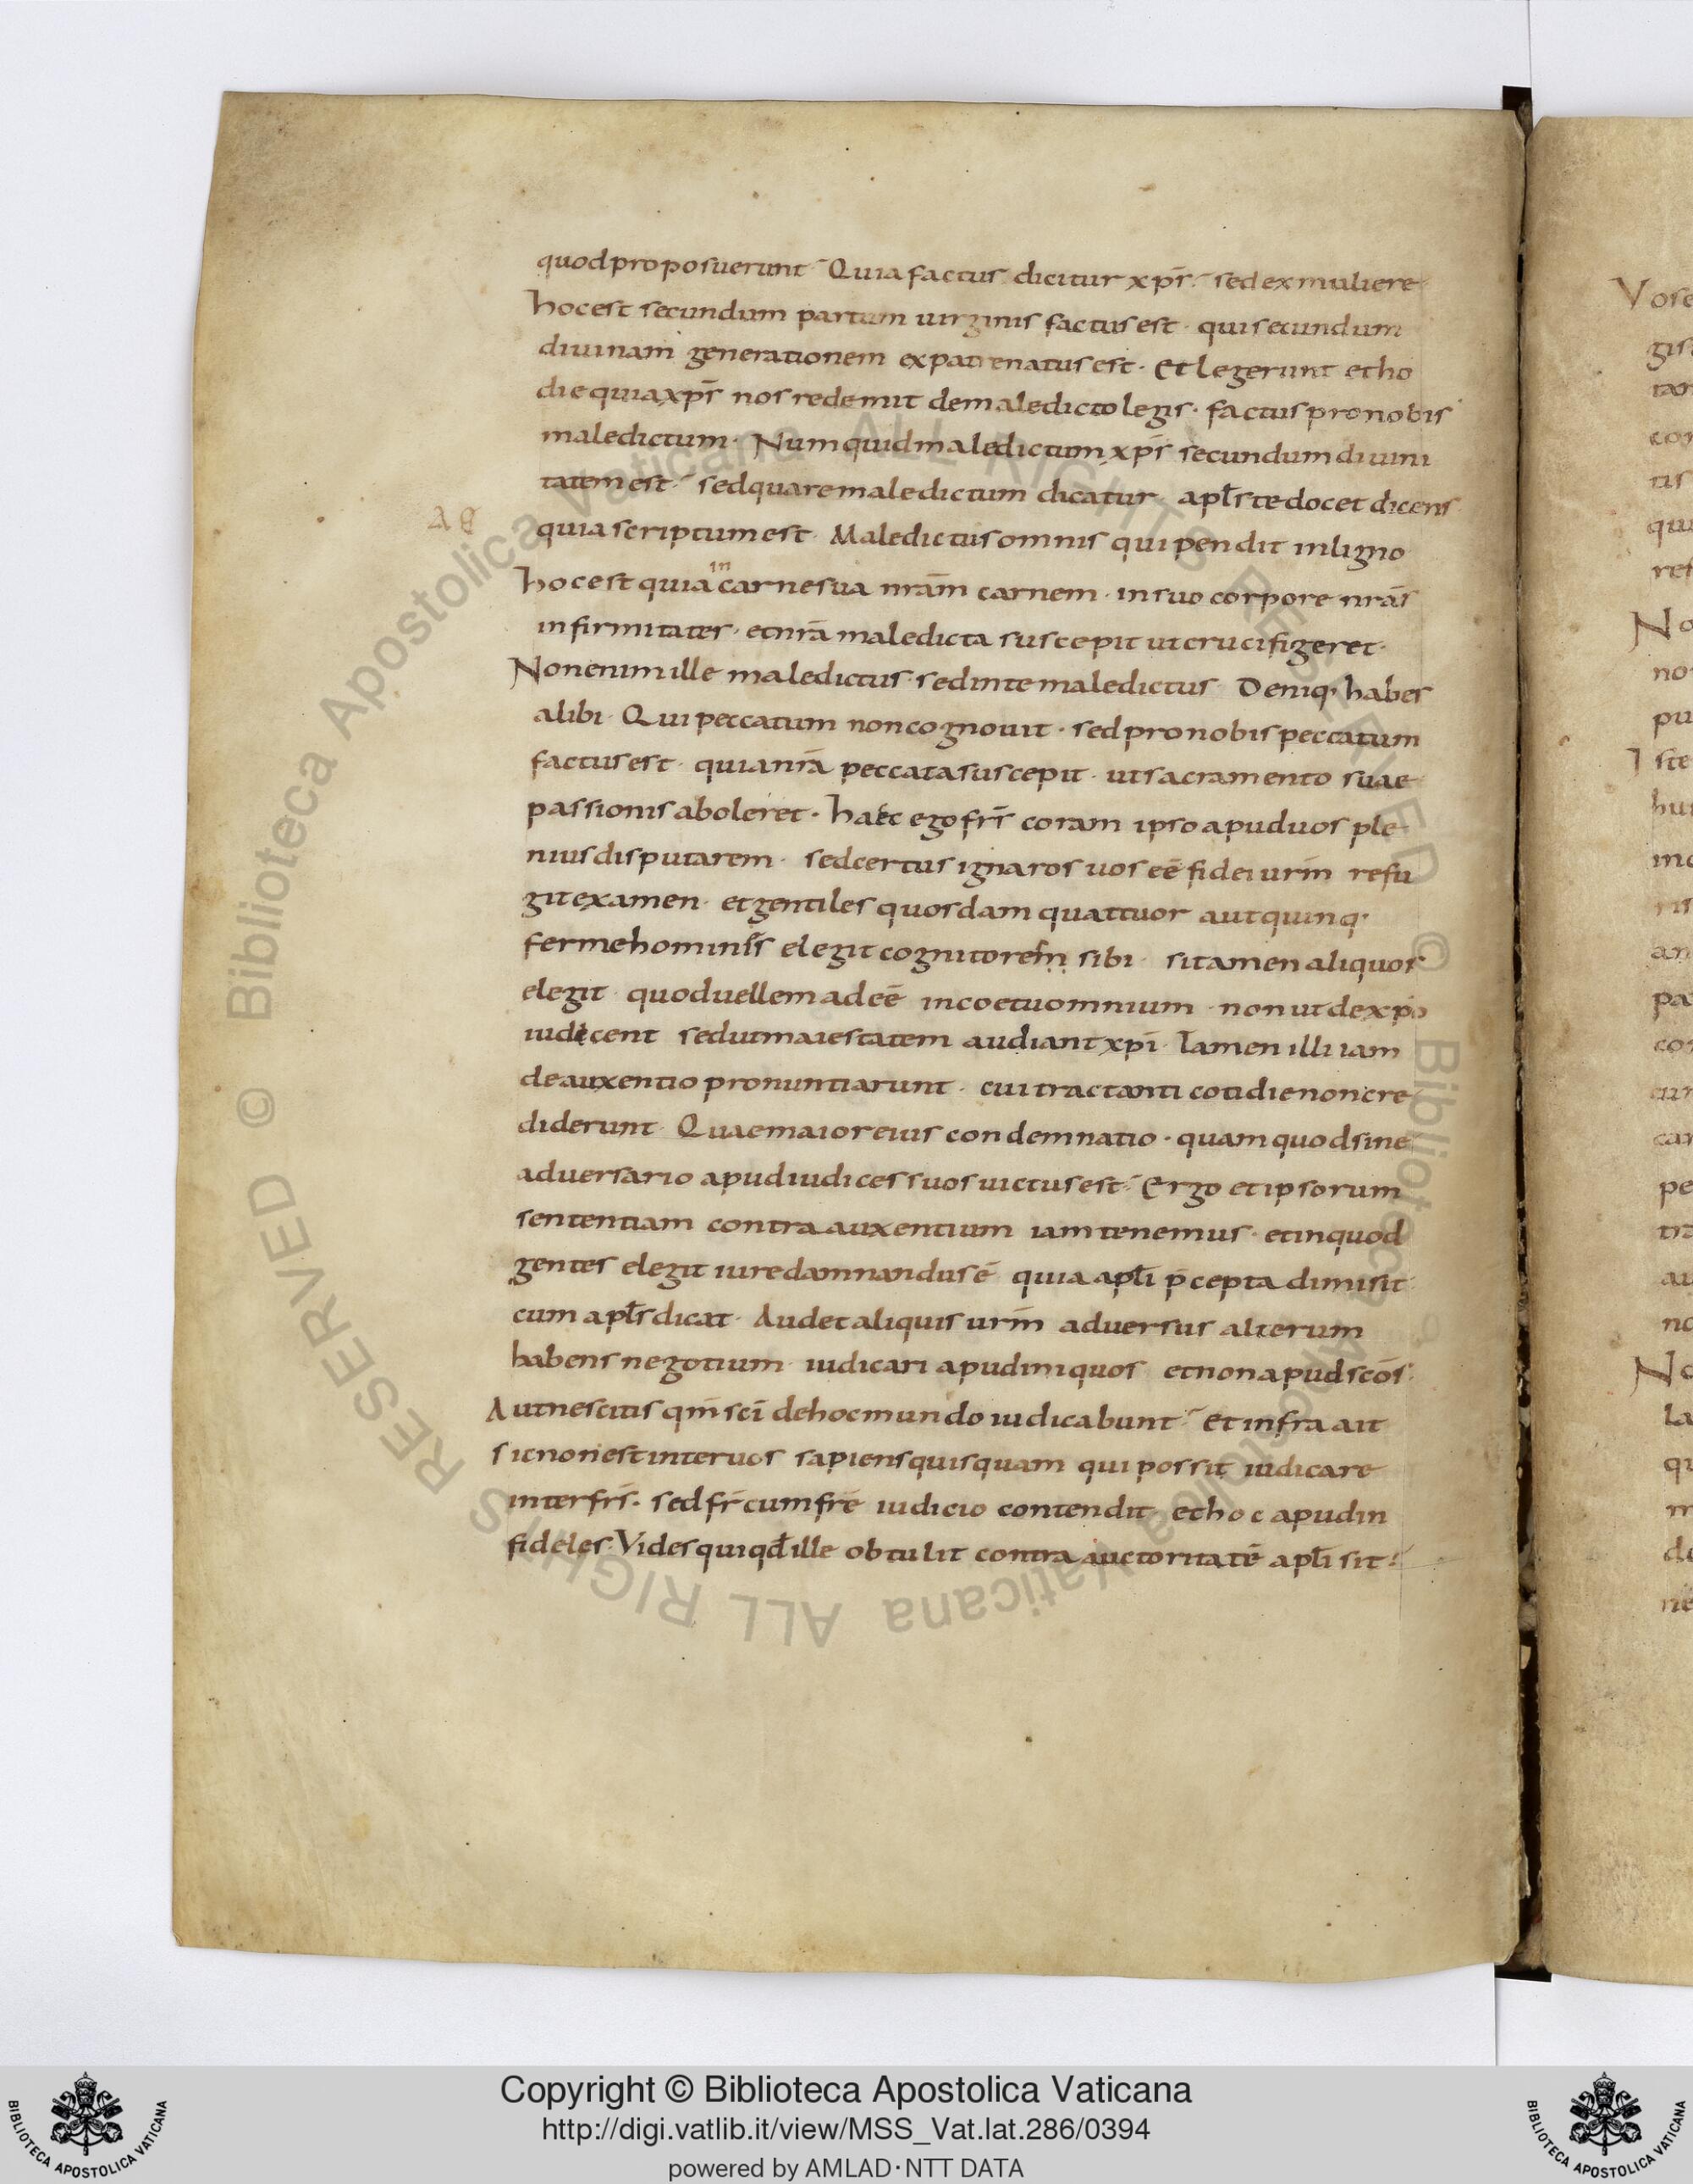 quod proposuerunt Quia factus dicitur xp̄s sed ex muliere
hoc est secundum partum uirginis factus est · qui secundum
diuinam generationem ex patre natus est · Et legerunt et ho
die quia xp̄s nos redemit de maledicto legis · factus pro nobis
maledictum · Numquid maledictum xp̄s secundum diuini
tatem est sed quare maledictum dicatur apłs te docet dicens
quia scriptum est · Maledictus omnis qui pendit in ligno
hoc est quia in carne sua nrām carnem · in suo corpore nrās
infirmitates · et nrā maledicta suscepit ut crucifigeret ·
Non enim ille maledictus · sed in te maledictus Deniq· habes
alibi · Qui peccatum non cognouit · sed pro nobis peccatum
factus est · quia nrā peccata suscepit · ut sacramento suae
passionis aboleret · haec ego frs̄ coram ipso apud uos ple
nius disputarem · sed certus ignaros uos eē fidei urm̄ refu
git examen · et gentiles quosdam quattuor aut quinq·
ferme hominis elegit cognitorem sibi · si tamen aliquos
elegit · quod uellem adeē in coetu omnium · non ut de xpo
iudicent sed ut maiestatem audiant xpī · Tamen illi iam
de auxentio pronuntiarunt · cui tractanti cotidie non cre
diderunt · Quae maior eius condemnatio · quam quod sine
aduersario apud iudices suos uictus est Ergo et ipsorum
sententiam contra auxentium iam tenemus · et in quod
gentes elegit iure damnandus ē quia apłi p̄cepta dimisit
cum apłs dicat · Audet aliquis urm̄ aduersus alterum
habens negotium · iudicari apud iniquos et non apud scōs ·
Aut nescitis qm̄ scī de hoc mundo iudicabunt Et infra ait
sic non est inter uos sapiens quisquam qui possit iudicare
inter frs̄ · sed fr̄ cum frē iudicio contendit et hoc apud in
fideles · Vides qui qđ ille obtulit contra auctoritatē apłi sit
Copyright © Biblioteca Apostolica Vaticana
http://digi.vatlib.it/view/MSS_Vat.lat.286/0394
powered by AMLAD·NTT DATA